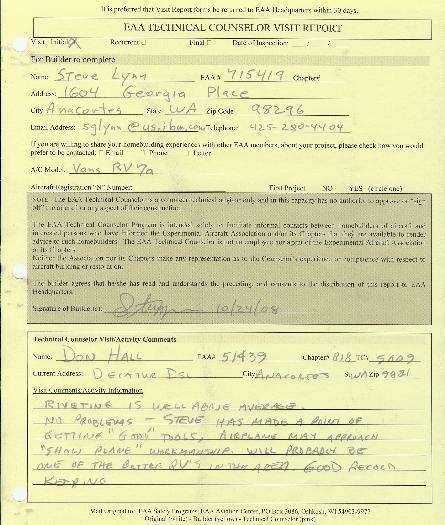 It is preferred that Visit Report forms be returned to EAA Headquarters within 30 days.
EAA TECHNICAL COUNSELOR VISIT REPORT
Visit: Initial X Recurrent Final Date of Inspection: / /
For Builder to complete
Name: Steve Lynn EAA # 715419 Chapter#
Address: 1604 Georgia Place
City Anacortes State WA Zip Code 98296
Email Address: sglynn@us.ibm.com Telephone 425-280-4404
If you are willing to share your homebuilding experiences with other EAA members, about your project, please check how you would
prefer to be contacted: Email Phone Letter
A/C Model: Vans RV7a
Aircraft Registration "N" Number: First Project NO YES (circle one)
NOTE: The EAA Technical Counselor is a volunteer technical advisor only and in this capacity has no authority to approve or "sign
off" the aircraft or any aspect of their construction.
The EAA Technical Counselor Program is intended solely to facilitate informal contacts between homebuilders of aircraft and
interested persons who have informed the Experimental Aircraft Association and/or its Chapters that they are available to render
advice to such homebuilders. The EAA Technical Counselor is not an employee nor agent of the Experimental Aircraft Association
or its Chapters.
Neither the Association nor its Chapters make any representation as to the Counselor's experience or competence with respect to
aircraft building or restoration.
The builder agrees that he/she has read and understands the preceding and consents to the distribution of this report to EAA
Headquarters.
Signature of Builder: 10/24/08
Technical Counselor Visit/Activity Comments
Name: DON HALL EAA# 51439 Chapter# 818 TC# 5A09
Current Address: DECATUR ISL City ANACORTES St WA Zip 98221
Visit Comments/Activity Information
RIVETING IS WELL ABOVE AVERAGE.
NO PROBLEMS - STEVE HAS MADE A POINT OF
GETTING "GOOD" TOOLS, AIRPLANE MAY APPROACH
"SHOW PLANE" WORKMANSHIP. WILL PROBABLY BE
ONE OF THE BETTER RV'S IN THE AREA. GOOD RECORD
KEEPING
Mail Original to: EAA Safety Programs, EAA Aviation Center, PO Box 3086, Oshkosh, WI 54903-9977
Original (white) - Builder (yellow) - Technical Counselor (pink)